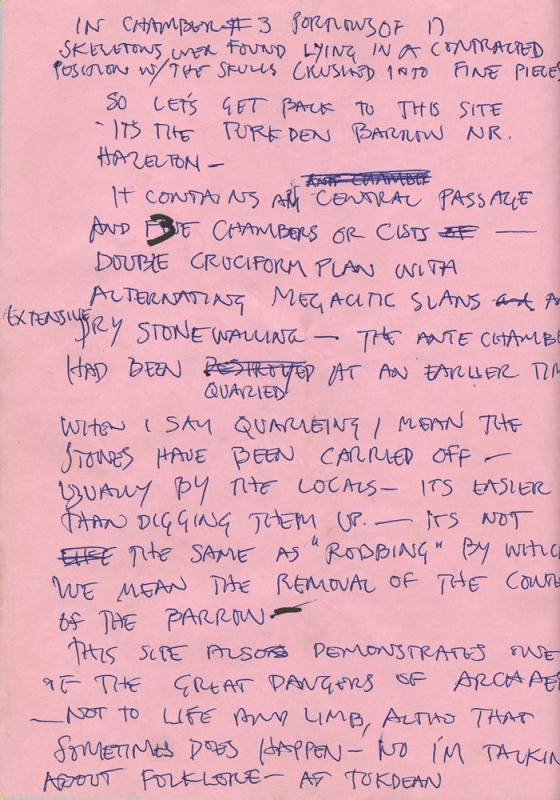 IN CHAMBER # 3 PORTIONS OF 17
SKELETONS WER FOUND LYING IN A CONTRACTED
POSITION W/ THE SKULLS CRUSHED INTO FINE PIECES
SO LET'S GET BACK TO THIS SITE
- ITS THE TURKDEN BARROW NR.
HAZELTON —
IT CONTAINS A CENTRAL PASSAGE
AND 3 CHAMBERS OR CISTS —
DOUBLE CRUCIFORM PLAN WITH
ALTERNATING MEGALITIC SLABS
EXTENSIVE DRY STONE WALLING — THE ANTE CHAMBE
HAD BEEN QUARIED AT AN EARLIER TIM
WHEN I SAY QUARREING I MEAN THE
STONES HAVE BEEN CARRIED OFF —
USUALLY BY THE LOCALS — ITS EASIER
THAN DIGGING THEM UP. — ITS NOT
THE SAME AS "ROBBING" BY WHIC
WE MEAN THE REMOVAL OF THE CONTE
OF THE BARROW —
THIS SITE ALSO DEMONSTRATES ONE
OF THE GREAT DANGERS OF ARCHAE
— NOT TO LIFE AND LIMB, ALTHO THAT
SOMETIMES DOES HAPPEN — NO I'M TALKIN
ABOUT FOLKLORE — AT TURKDEAN